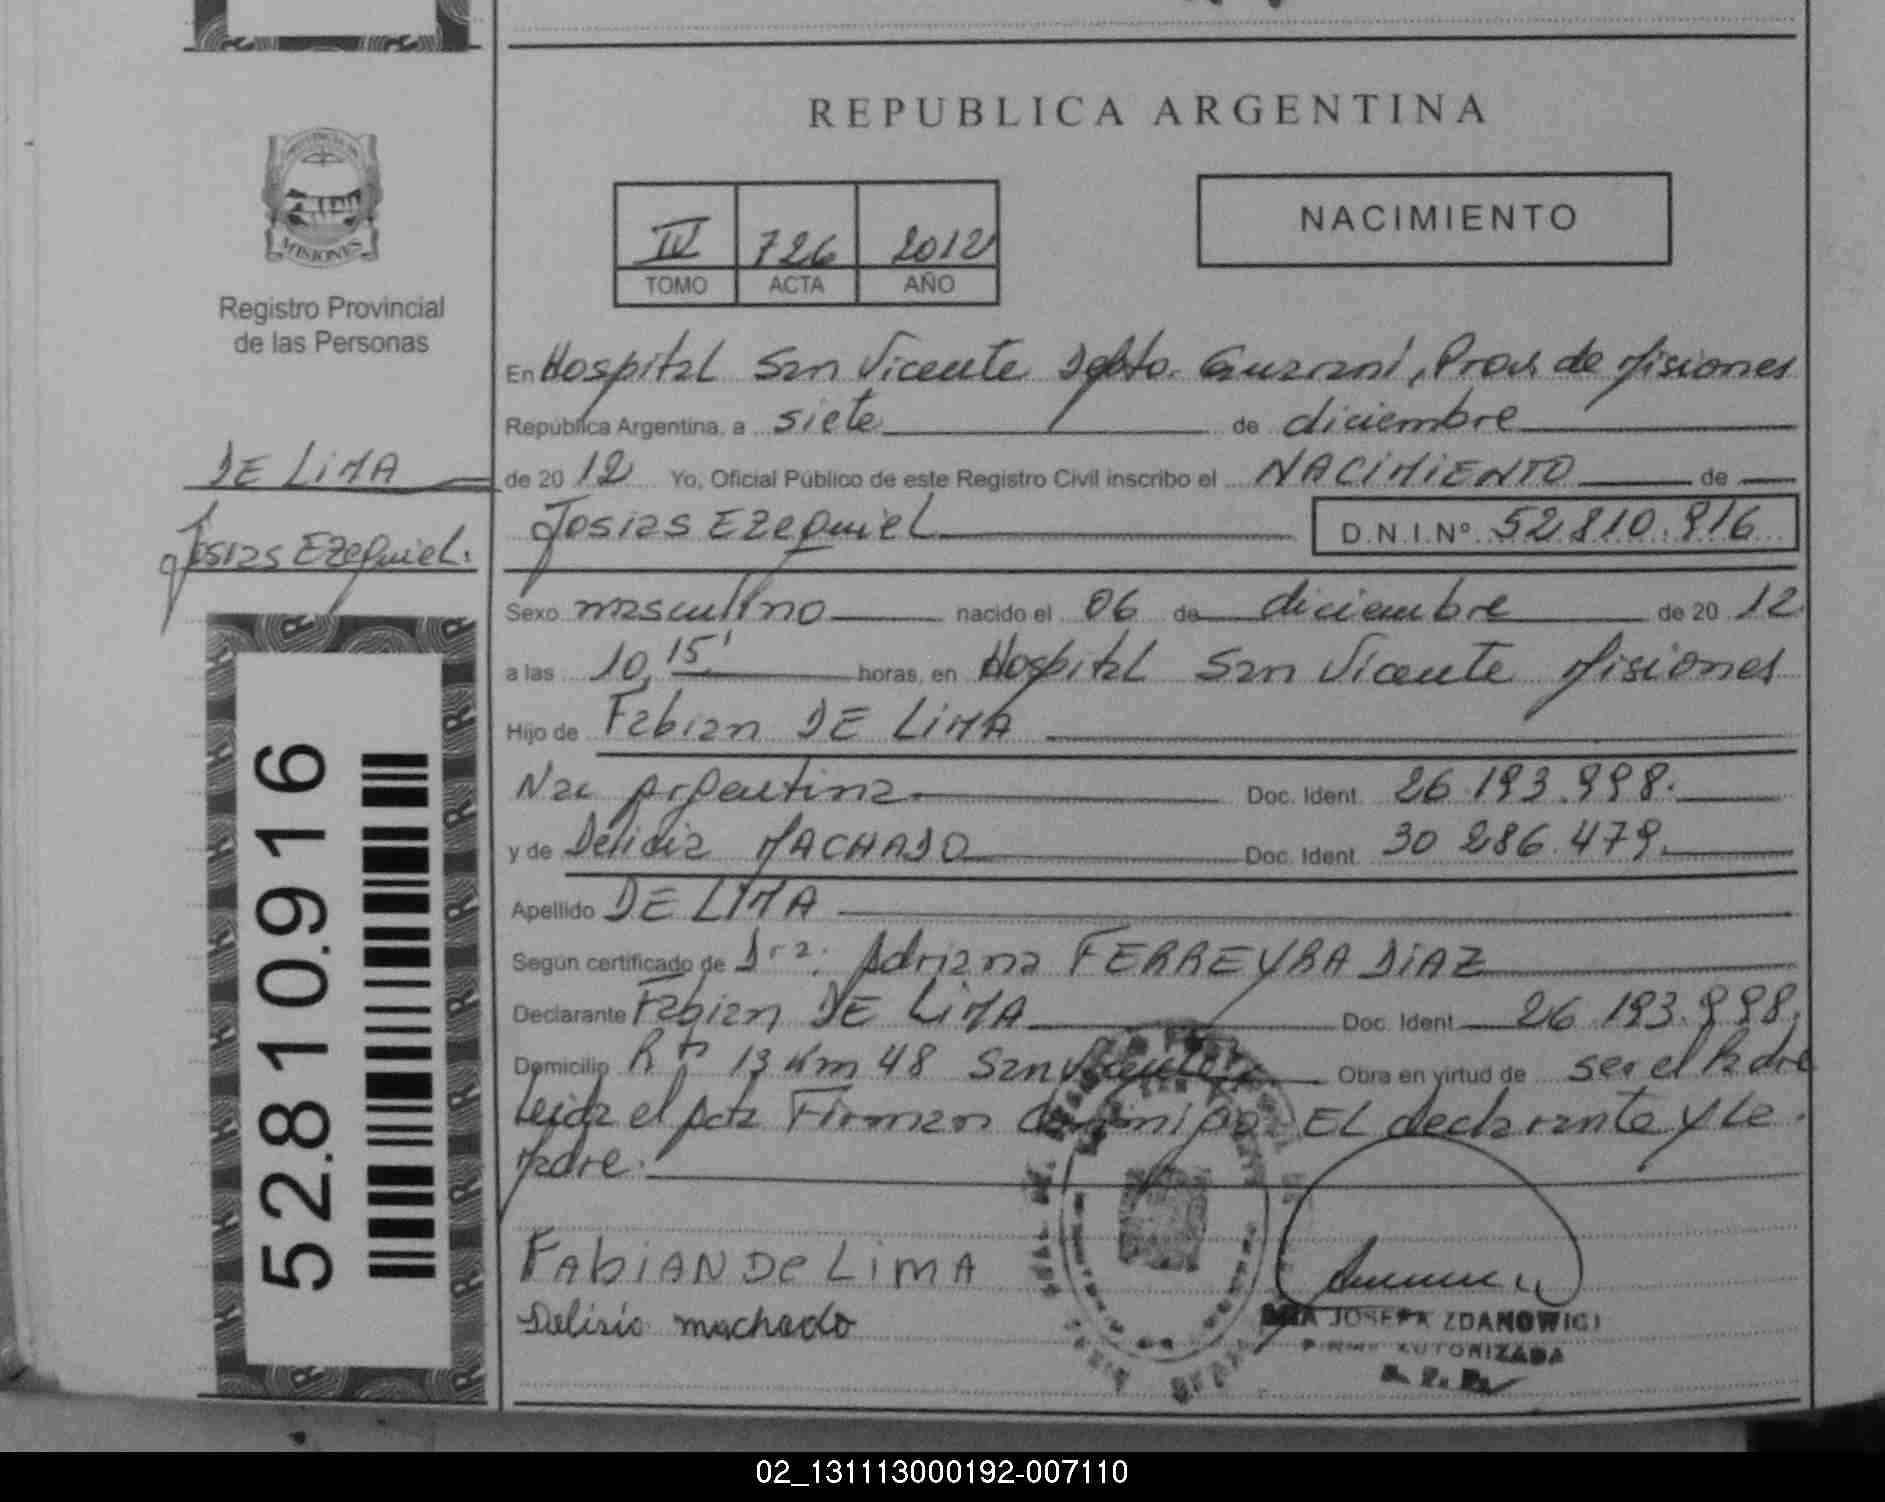 REPUBLICA ARGENTINA
MISIONES
Registro Provincial
de las Personas
IV 726 2012
TOMO ACTA AÑO
NACIMIENTO
En Hospital San Vicente Depto. Guaraní, Prov de Misiones
República Argentina, a siete de diciembre
de 20 12 Yo, Oficial Público de este Registro Civil inscribo el NACIMIENTO de
Josias Ezequiel D.N.I.Nº 52.810.916
DE LIMA
Josias Ezequiel.
Sexo masculino nacido el 06 de diciembre de 20 12
a las 10,15' horas, en Hospital San Vicente Misiones
Hijo de Fabian DE LIMA
Nac Argentina Doc. Ident. 26.193.998.
y de Delicia MACHADO Doc. Ident. 30 286.479.
Apellido DE LIMA
Según certificado de Dra. Adriana FERREYRA DIAZ
Declarante Fabian DE LIMA Doc. Ident 26.193.998.
Domicilio R 13 Km 48 San Vicente Obra en virtud de ser el Padre
Leida el Acta Firman conmigo EL declarante y la
Madre.
FAbiAN De LiMA
Delisio machado
JOSEFA ZDANOWICZ
FIRMA AUTORIZADA
R. P. P.
52.810.916
02_131113000192-007110